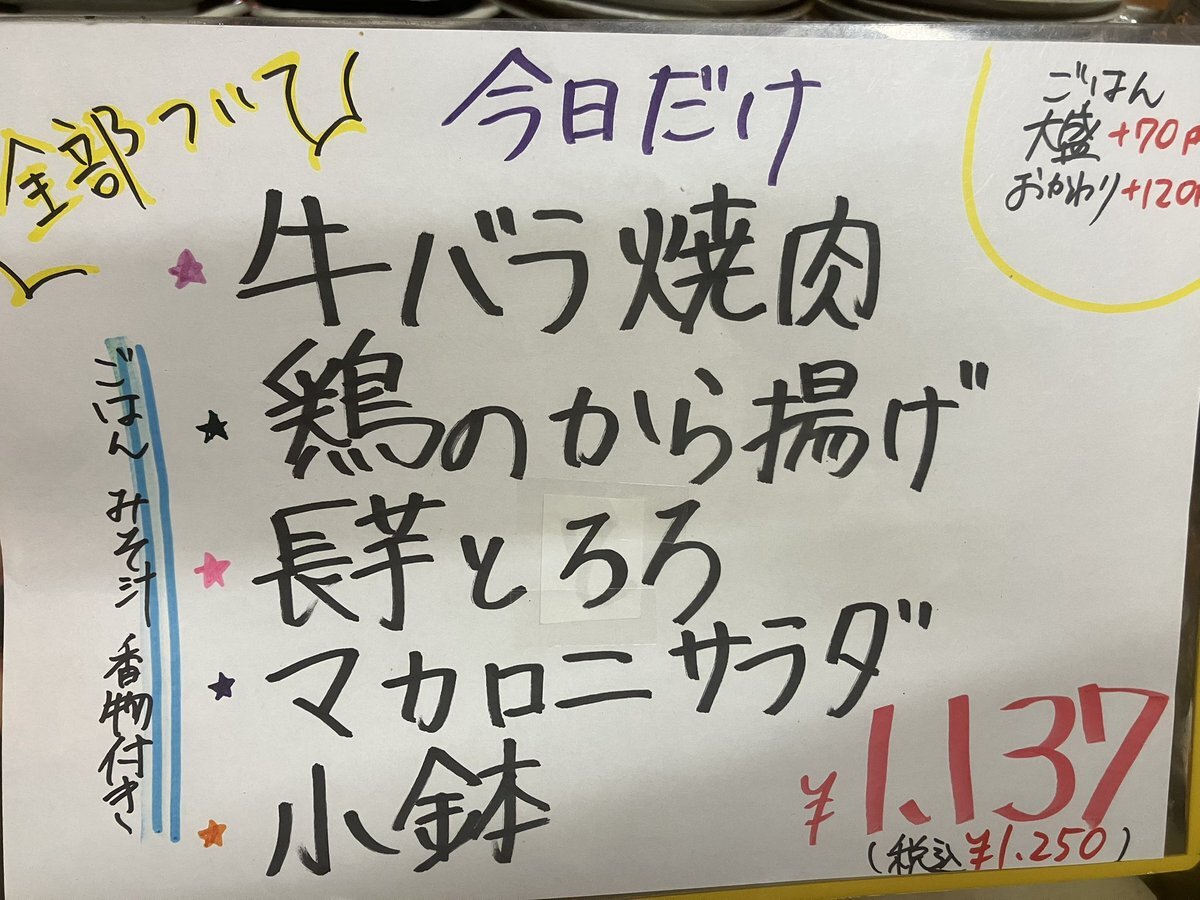 全部ついて
今日だけ
ごはん
大盛 +70
おかわり +120
牛バラ焼肉
鶏のから揚げ
長芋とろろ
マカロニサラダ
小鉢
ごはん みそ汁 香物付き
¥1,137
(税込¥1.250)